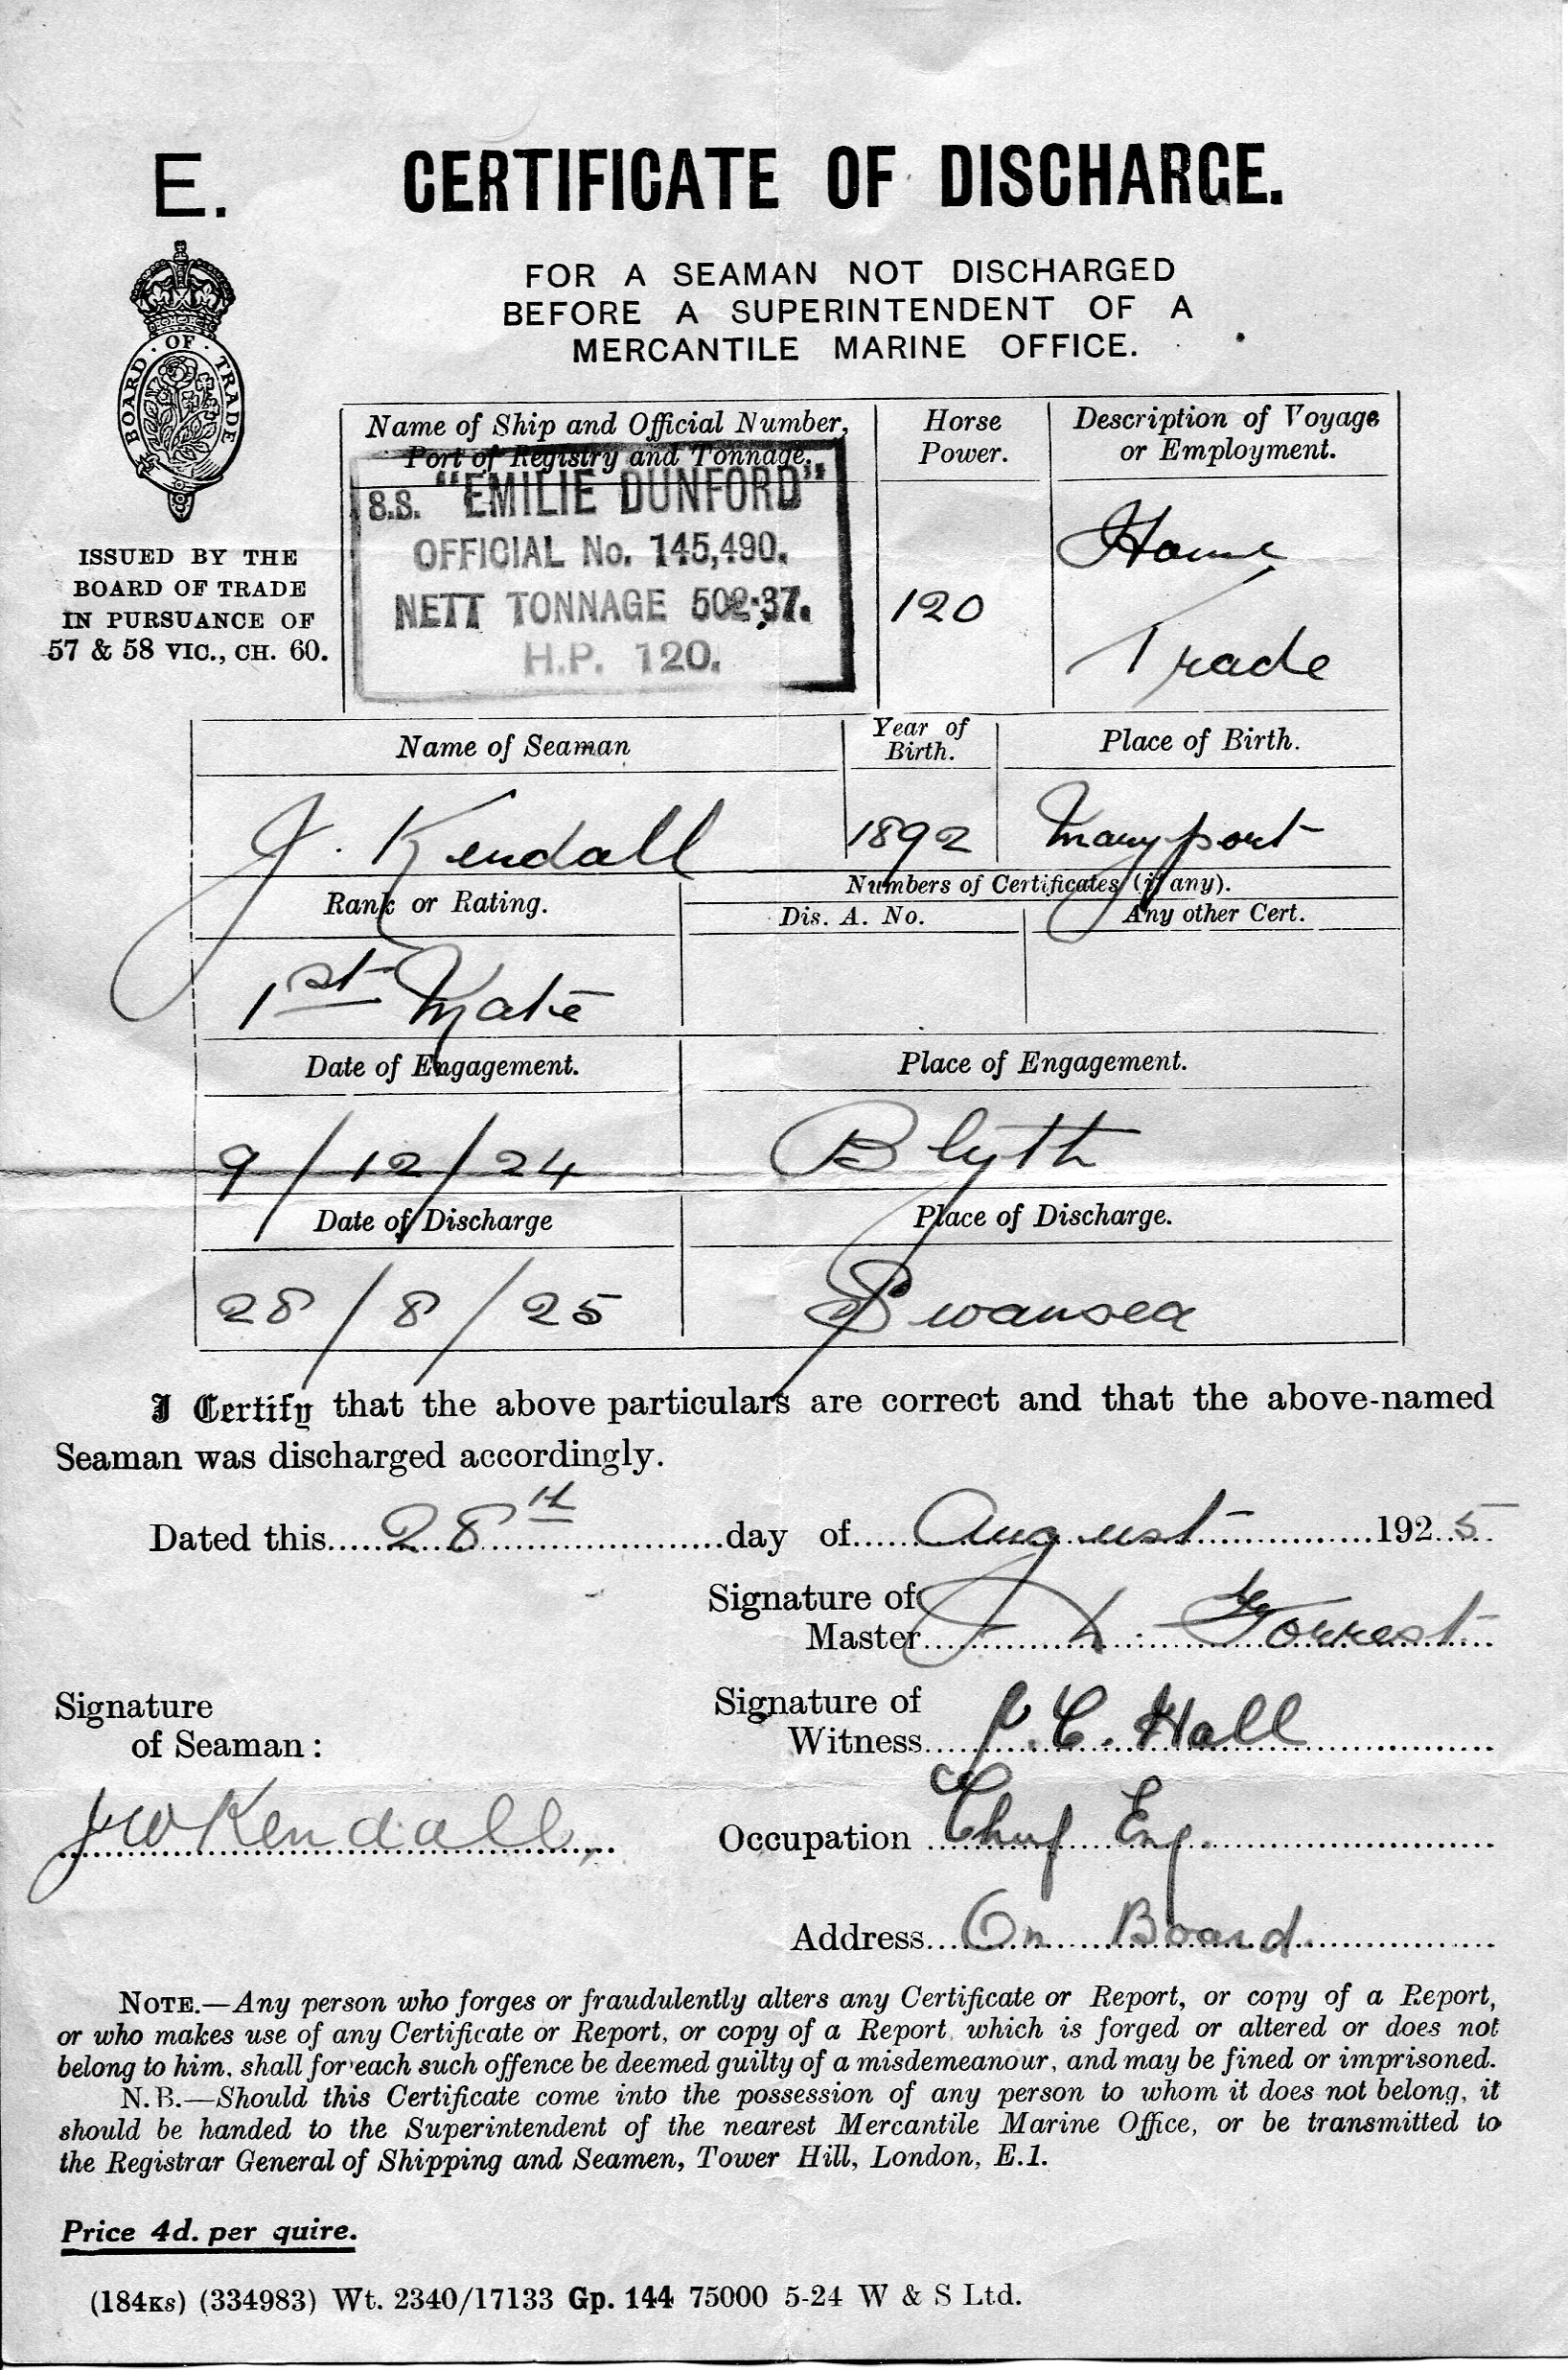 E.
CERTIFICATE OF DISCHARGE.
FOR A SEAMAN NOT DISCHARGED
BEFORE A SUPERINTENDENT OF A
MERCANTILE MARINE OFFICE.
BOARD · OF · TRADE
ISSUED BY THE
BOARD OF TRADE
IN PURSUANCE OF
57 & 58 VIC., CH. 60.
Name of Ship and Official Number,
Port of Registry and Tonnage.
Horse
Power.
Description of Voyage
or Employment.
S.S. "EMILIE DUNFORD"
OFFICIAL No. 145,490.
NETT TONNAGE 502·37.
H.P. 120.
120
Home
Trade
Name of Seaman
Year of
Birth.
Place of Birth.
J. Kendall
1892
Maryport
Rank or Rating.
Numbers of Certificates (if any).
Dis. A. No.
Any other Cert.
1st Mate
Date of Engagement.
Place of Engagement.
9/12/24
Blyth
Date of Discharge
Place of Discharge.
28/8/25
Swansea
I Certify that the above particulars are correct and that the above-named
Seaman was discharged accordingly.
Dated this 28th day of August 1925
Signature of
Master Forrest
Signature
of Seaman:
JW Kendall
Signature of
Witness C. Hall
Occupation Chief Eng.
Address On Board
NOTE.—Any person who forges or fraudulently alters any Certificate or Report, or copy of a Report,
or who makes use of any Certificate or Report, or copy of a Report which is forged or altered or does not
belong to him, shall for each such offence be deemed guilty of a misdemeanour, and may be fined or imprisoned.
N.B.—Should this Certificate come into the possession of any person to whom it does not belong, it
should be handed to the Superintendent of the nearest Mercantile Marine Office, or be transmitted to
the Registrar General of Shipping and Seamen, Tower Hill, London, E.1.
Price 4d. per quire.
(184KS) (334983) Wt. 2340/17133 Gp. 144 75000 5-24 W & S Ltd.